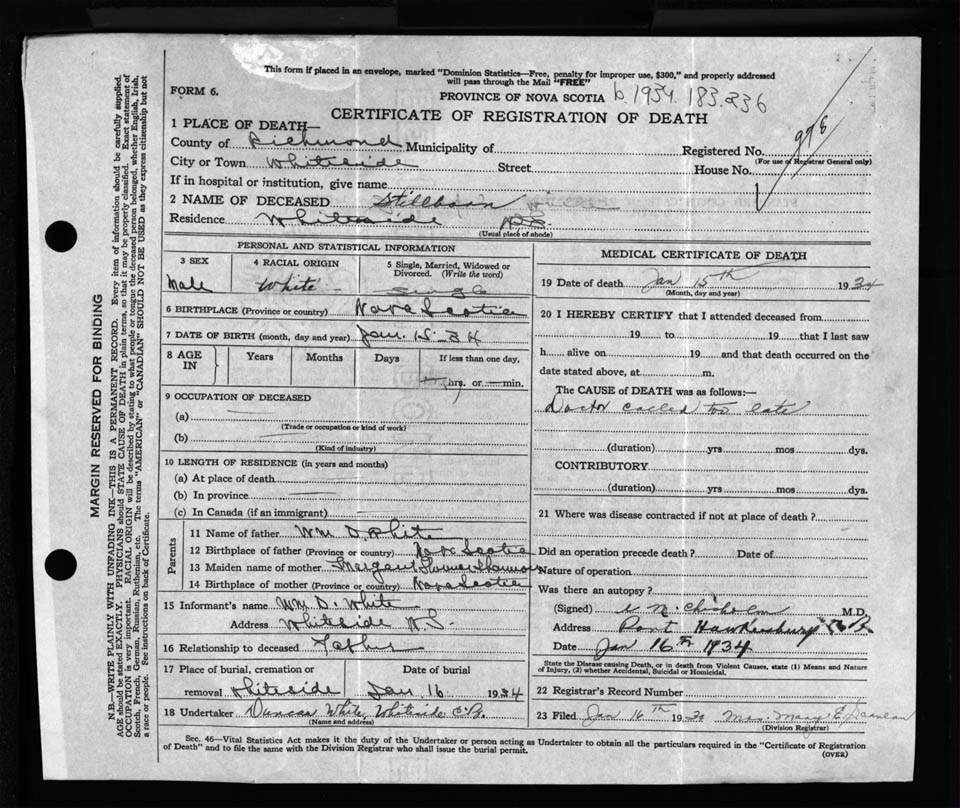 This form if placed in an envelope, marked "Dominion Statistics—Free, penalty for improper use, $300," and properly addressed
will pass through the Mail "FREE"
FORM 6.
PROVINCE OF NOVA SCOTIA b.1934.183.236
CERTIFICATE OF REGISTRATION OF DEATH
978
1 PLACE OF DEATH—
County of Richmond Municipality of
Registered No.
(For use of Registrar General only)
City or Town Whiteside Street
House No.
If in hospital or institution, give name
2 NAME OF DECEASED Stillborn
Residence Whiteside N.S.
(Usual place of abode)
PERSONAL AND STATISTICAL INFORMATION
3 SEX 4 RACIAL ORIGIN 5 Single, Married, Widowed or
Divorced. (Write the word)
Male White Single
6 BIRTHPLACE (Province or country) Nova Scotia
7 DATE OF BIRTH (month, day and year) Jan. 15-34
8 AGE IN Years Months Days If less than one day,
hrs. or — min.
9 OCCUPATION OF DECEASED
(a) —
(Trade or occupation or kind of work)
(b) —
(Kind of industry)
10 LENGTH OF RESIDENCE (in years and months)
(a) At place of death —
(b) In province —
(c) In Canada (if an immigrant) —
Parents
11 Name of father Wm. D. White
12 Birthplace of father (Province or country) Nova Scotia
13 Maiden name of mother Margaret
14 Birthplace of mother (Province or country) Nova Scotia
15 Informant's name Wm D. White
Address Whiteside N.S.
16 Relationship to deceased Father
17 Place of burial, cremation or Date of burial
removal Whiteside Jan. 16 1934
18 Undertaker Duncan White, Whiteside C.B.
(Name and address)
MEDICAL CERTIFICATE OF DEATH
19 Date of death Jan 15th 1934
(Month, day and year)
20 I HEREBY CERTIFY that I attended deceased from
19 to 19 that I last saw
h alive on 19 and that death occurred on the
date stated above, at m.
The CAUSE OF DEATH was as follows:—
Doctor called too late
(duration) yrs mos dys.
CONTRIBUTORY
(duration) yrs mos dys.
21 Where was disease contracted if not at place of death?
Did an operation precede death? Date of
Nature of operation
Was there an autopsy?
(Signed) M. Chisholm M.D.
Address Port Hawkesbury
Date Jan 16th 1934
State the Disease causing Death, or in death from Violent Causes, state (1) Means and Nature
of Injury, (2) whether Accidental, Suicidal or Homicidal.
22 Registrar's Record Number
23 Filed Jan 16th 1934 Mrs. Mary E. Scanlan
(Division Registrar)
Sec. 46—Vital Statistics Act makes it the duty of the Undertaker or person acting as Undertaker to obtain all the particulars required in the "Certificate of Registration
of Death" and to file the same with the Division Registrar who shall issue the burial permit.
(OVER)
MARGIN RESERVED FOR BINDING
N.B.—WRITE PLAINLY WITH UNFADING INK—THIS IS A PERMANENT RECORD. Every item of information should be carefully supplied.
AGE should be stated EXACTLY. PHYSICIANS should STATE CAUSE OF DEATH in plain terms, so that it may be properly classified. Exact statement of
OCCUPATION is very important. RACIAL ORIGIN will be described by stating to what people or tongue the deceased person belonged, whether English, Irish,
Scotch, French, German, Russian, Ruthenian, etc. The terms "AMERICAN" or "CANADIAN" SHOULD NOT BE USED as they express citizenship but not
a race or people. See instructions on back of Certificate.